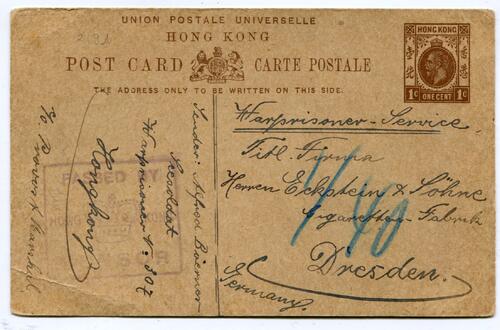 2.91
UNION POSTALE UNIVERSELLE
HONG KONG
POST CARD CARTE POSTALE
THE ADDRESS ONLY TO BE WRITTEN ON THIS SIDE.
HONG KONG
1c ONE CENT 1c
Warprisoner-Service.
Titl. Firma
Herren Eckstein & Söhne
Cigaretten-Fabrik
Dresden.
Germany.
1/40
Sender: Alfred
Seesoldat
Warprisoner No. 307
Hongkong
PASSED BY
HONG KONG
To Provost Marshal.